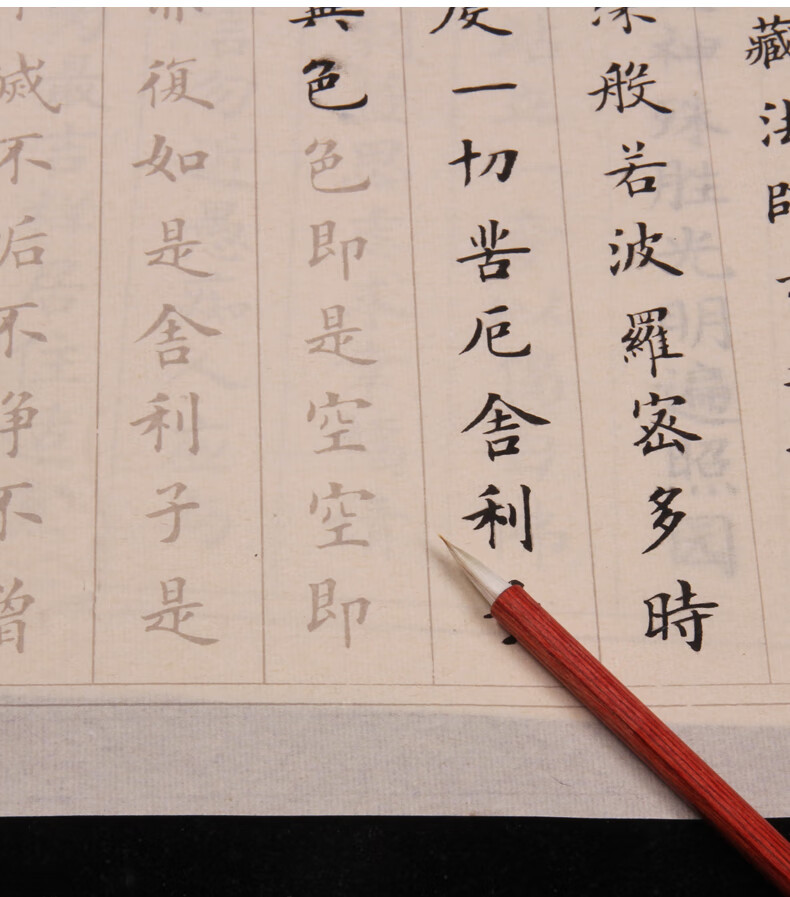 藏法師
深般若波羅密多時
度一切苦厄舍利
異色色即是空空即
亦復如是舍利子是
滅不垢不净不增